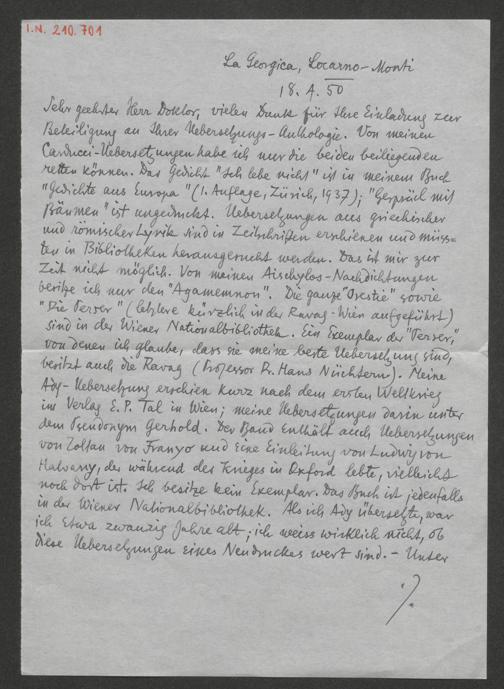 I.N. 210.701
La Georgica, Locarno-Monti
18. 4. 50
Sehr geehrter Herr Doktor, vielen Dank für Ihre Einladung zur
Beteiligung an Ihrer Uebersetzungs-Anthologie. Von meinen
Carducci-Uebersetzungen habe ich nur die beiden beiliegenden
retten können. Das Gedicht "Ich lebe nicht" ist in meinem Buch
"Gedichte aus Europa" (1. Auflage, Zürich, 1937); "Gespräch mit
Bäumen" ist ungedruckt. Uebersetzungen aus griechischer
und römischer Lyrik sind in Zeitschriften erschienen und müss=
ten in Bibliotheken herausgesucht werden. Das ist mir zur
Zeit nicht möglich. Von meinen Aischylos-Nachdichtungen
besitze ich nur den "Agamemnon". Die ganze "Orestie" sowie
"Die Perser" (letztere kürzlich in der Ravag-Wien aufgeführt)
sind in der Wiener Nationalbibliothek. Ein Exemplar der "Perser",
von denen ich glaube, dass sie meine beste Uebersetzung sind,
besitzt auch die Ravag (Professor Dr. Hans Nüchtern). Meine
Ady-Uebersetzung erschien kurz nach dem ersten Weltkrieg
im Verlag E. P. Tal in Wien; meine Uebersetzungen darin unter
dem Pseudonym Gerhold. Der Band enthält auch Uebersetzungen
von Zoltan von Franyo und eine Einleitung von Ludwig von
Hatvany, der während des Krieges in Oxford lebte, vielleicht
noch dort ist. Ich besitze kein Exemplar. Das Buch ist jedenfalls
in der Wiener Nationalbibliothek. Als ich Ady übersetzte, war
ich etwa zwanzig Jahre alt; ich weiss wirklich nicht, ob
diese Uebersetzungen eines Neudruckes wert sind. – Unter
./.